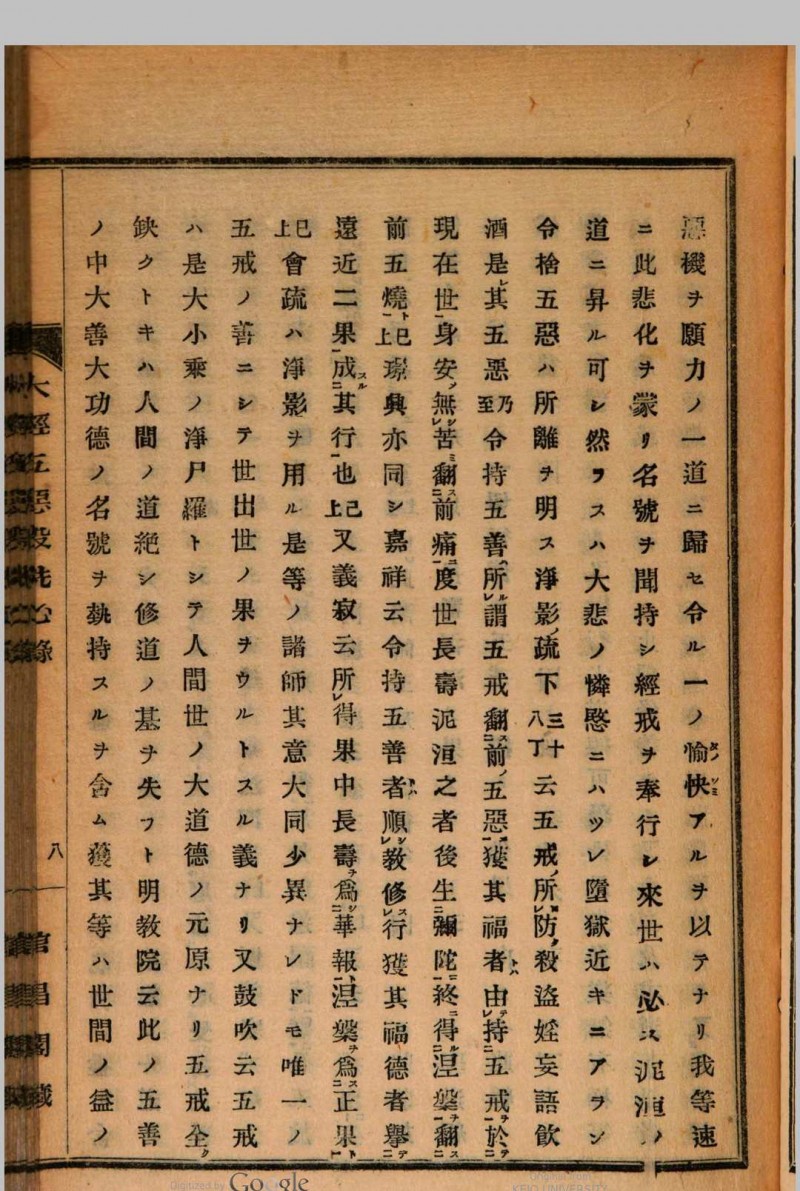 惡機ヲ願力ノ一道ニ歸セ令ル一ノ愉快アルヲ以テナリ我等速
ニ此悲化ヲ蒙リ名號ヲ聞持シ經戒ヲ奉行シ來世ハ必ス泥洹ノ
道ニ昇ル可シ然ラスハ大悲ノ憐愍ニハツレ墮獄近キニアラン
令捨五惡ハ所離ヲ明ス淨影ノ疏下三十八丁云五戒ノ所防殺盜婬妄語飲
酒是其五惡乃至令持五善所謂五戒翻前五惡獲其福者由持五戒於
現在世身安無苦翻前痛度世長壽泥洹之者後生彌陀終得涅槃翻
前五燒已上璟興亦同シ嘉祥云令持五善者順敎修行獲其福德者擧
遠近二果成其行也已上又義寂云所得果中長壽爲華報涅槃爲正果
已上會疏ハ淨影ヲ用ル是等ノ諸師其意大同少異ナレドモ唯一ノ
五戒ノ善ニシテ世出世ノ果ヲウルトスル義ナリ又鼓吹云五戒
ハ是大小乘ノ淨尸羅トシテ人間世ノ大道德ノ元原ナリ五戒全ク
缺クトキハ人間ノ道絕シ修道ノ基ヲ失フト明敎院云此ノ五善
ノ中大善大功德ノ名號ヲ執持スルヲ含ム獲其等ハ世間ノ益ノ
大經五惡段
八
Digitized by Google
Original from
KEIO UNIVERSITY